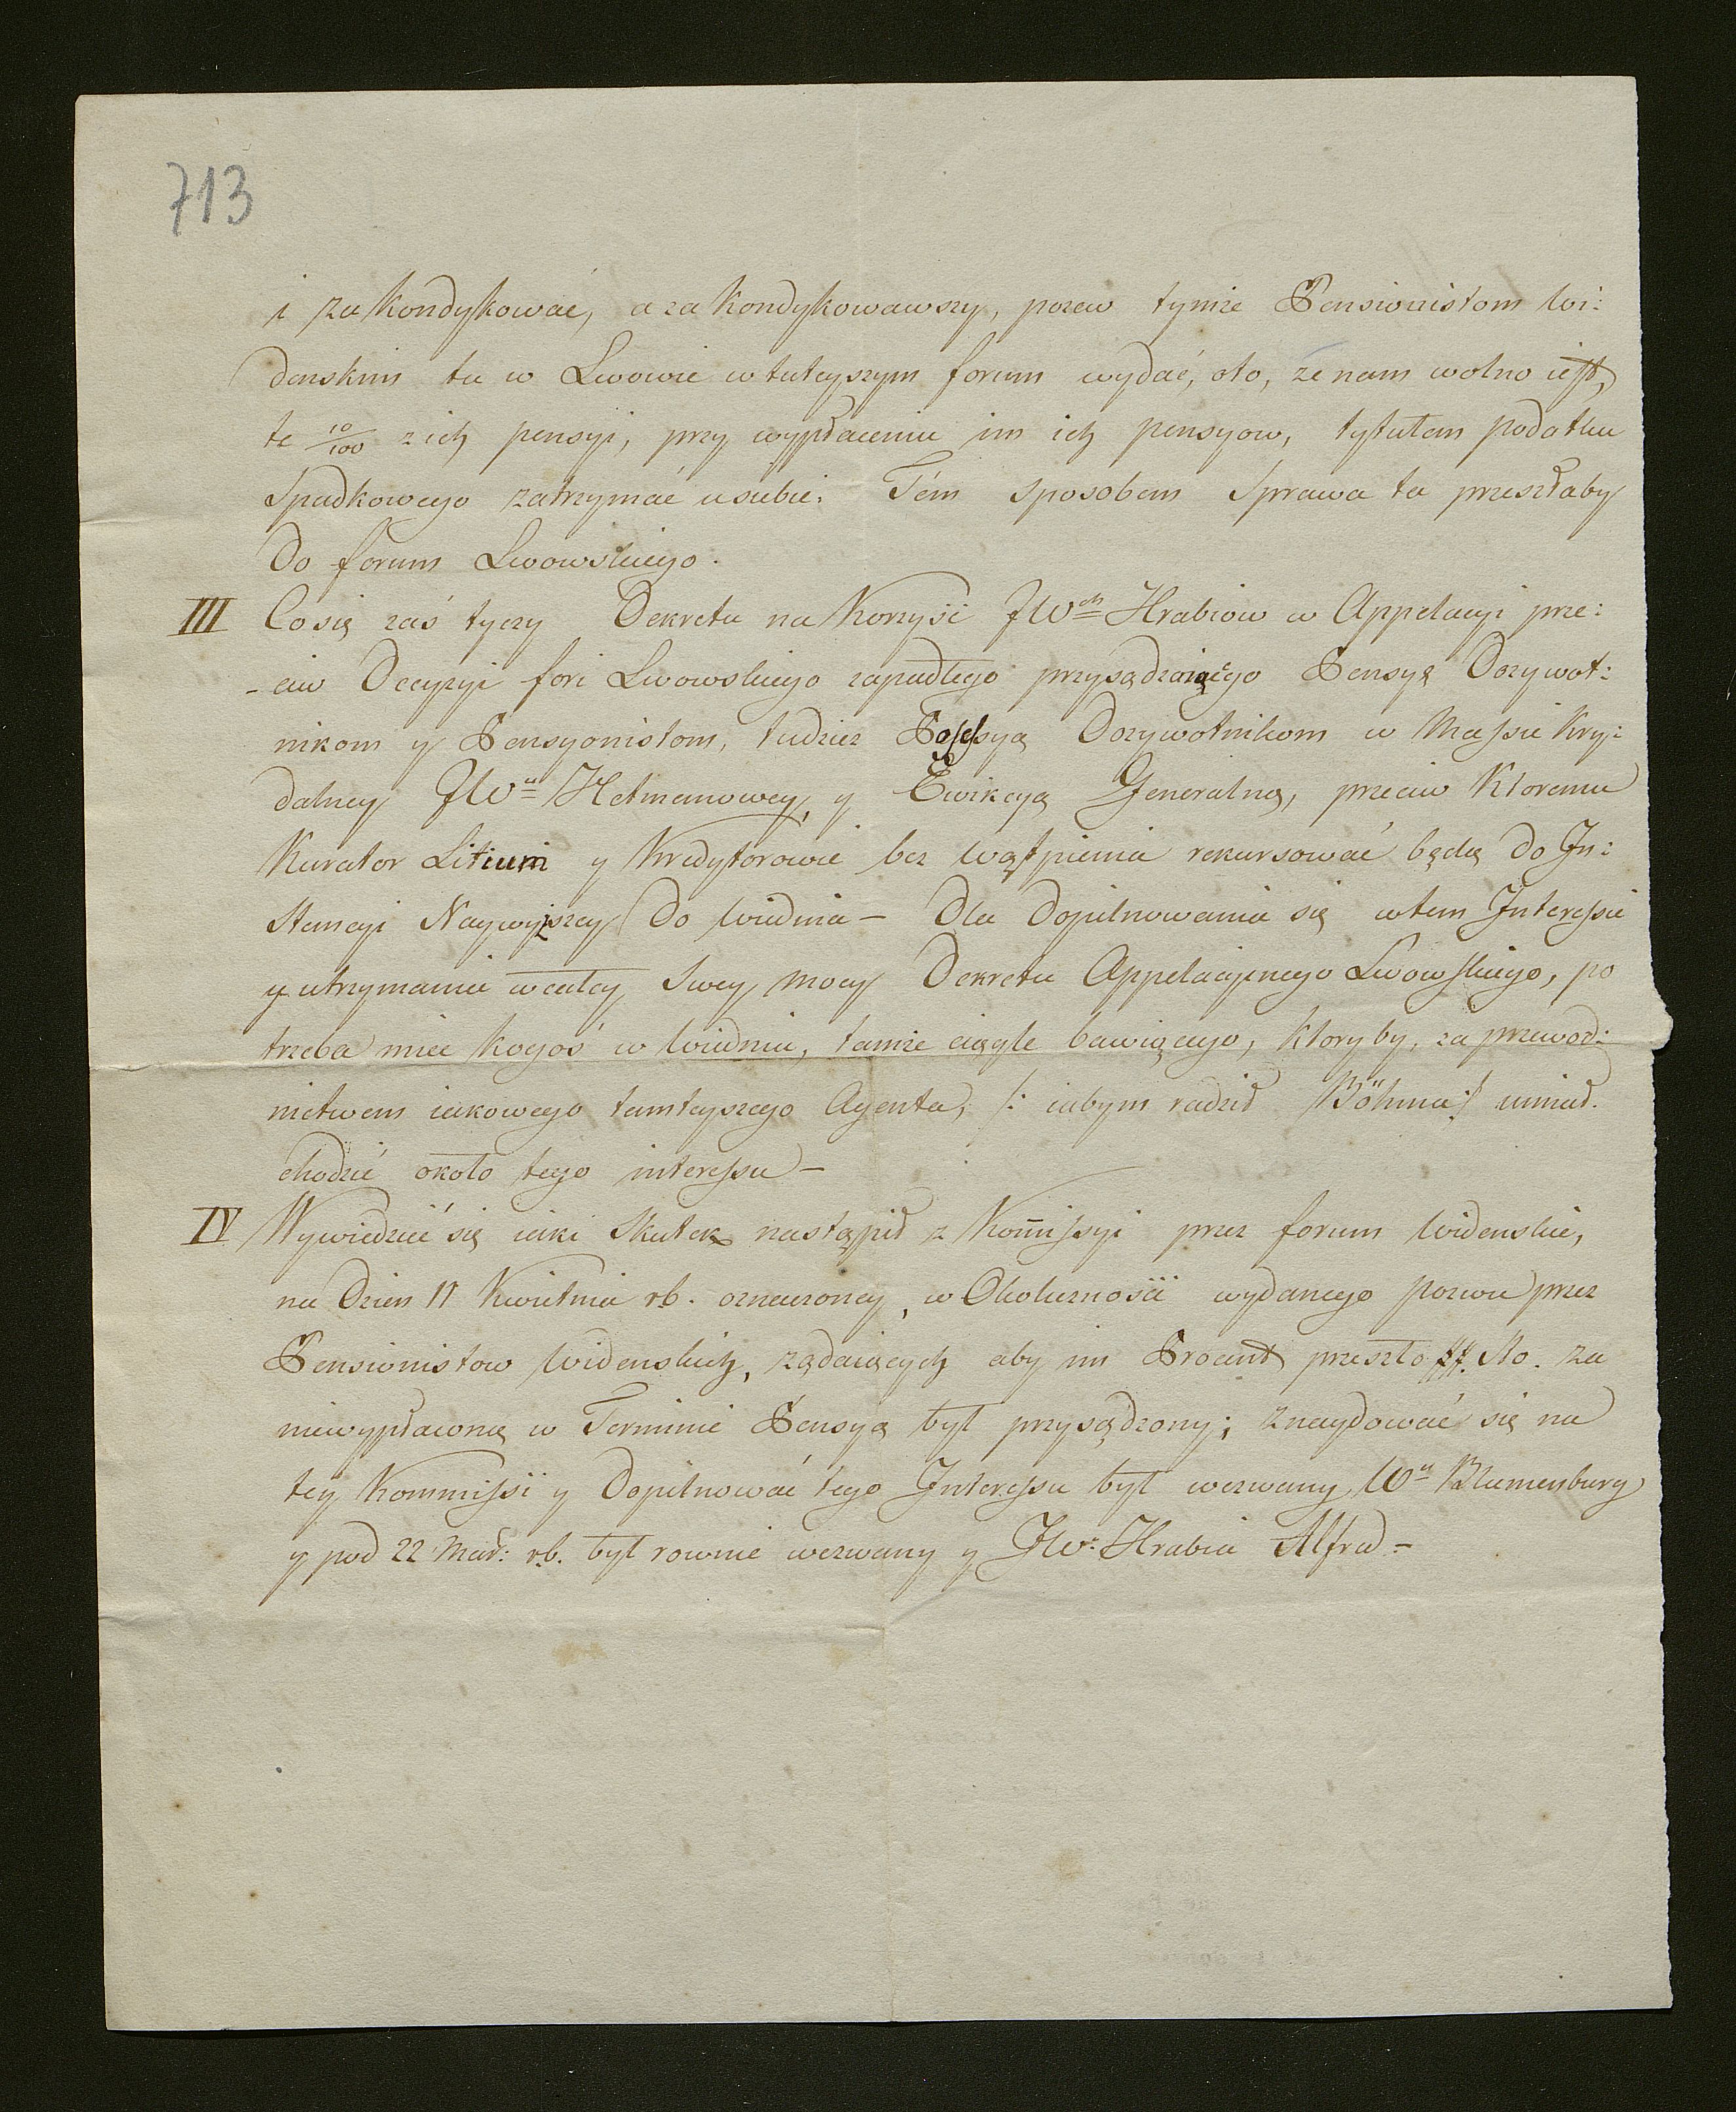 713
i zakondykować, a zakondykowawszy, pozew tymże Pensionistom Wi:
denskim tu w Lwowie w tuteyszym forum wydać, oto, że nam wolno iest,
te 10/100 z ich pensyi, przy wypłaceniu im ich pensyow, tytułem podatku
Spadkowego zatrzymać u siebie. Tém sposobem Sprawa ta przeszłaby
do forum Lwowskiego.
III Co się zaś tyczy Dekretu na Korzyść JWch Hrabiow w Appelacyi prze:
-ciw Decyzyi fori Lwowskiego zapadłego przysądzaiącego Pensyą Dozywot:
nikom y Pensyonistom, tudziez Possessyą Dozywotnikom w Massie Kry:
dalney JWney Hetmanowey, y Ewikcyą Generalną, przeciw Ktoremu
Kurator Litium y Kredytorowie bez wątpienia rekursować będą do In:
stancyi Naywyzszey do Widnia – Dla dopilnowania się w tem Interessie
y utrzymania w całey swey mocy Dekretu Appelacyinego Lwowskiego, po
trzeba mieć kogoś w Widniu, tamże ciągle bawiącego, ktoryby, za przewod:
nictwem iakowego tamteyszego Agenta, /: iabym radził Böhma :/ umiał
chodzić około tego interessu –
IV Wywiedzieć się iaki Skutek nastąpił z Kom̄issyi przez forum Widenskie,
na Dzien 17 Kwietnia rb. oznaczoney, w Okoliczności wydanego pozwu przez
Pensionistow Widenskich, ządaiących aby im Procent przeszło ff. Ko. za
niewypłaconą w Terminie Pensyą był przysądzony; znaydować się na
tey Kommissii y Dopilnować tego Interessu był wezwany Wn Blumenburg
y pod 22 Mar: rb. był rownie wezwany y JW. Hrabia Alfred –